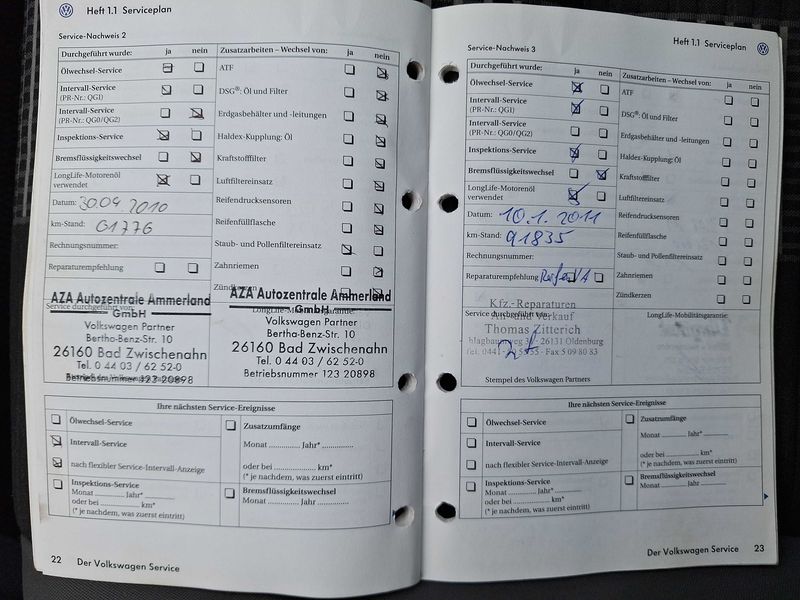 Heft 1.1 Serviceplan
Service-Nachweis 2
Durchgeführt wurde: ja nein
Ölwechsel-Service
Intervall-Service
(PR-Nr.: QG1)
Intervall-Service
(PR-Nr.: QG0/QG2)
Inspektions-Service
Bremsflüssigkeitswechsel
LongLife-Motorenöl
verwendet
Datum: 30.04 2010
km-Stand: 61776
Rechnungsnummer:
Reparaturempfehlung
Zusatzarbeiten – Wechsel von: ja nein
ATF
DSG®: Öl und Filter
Erdgasbehälter und -leitungen
Haldex-Kupplung: Öl
Kraftstofffilter
Luftfiltereinsatz
Reifendrucksensoren
Reifenfüllflasche
Staub- und Pollenfiltereinsatz
Zahnriemen
Zündkerzen
AZA Autozentrale Ammerland
GmbH
Volkswagen Partner
Bertha-Benz-Str. 10
26160 Bad Zwischenahn
Tel. 0 44 03 / 62 52-0
Betriebsnummer 123 20898
AZA Autozentrale Ammerland
GmbH
Volkswagen Partner
Bertha-Benz-Str. 10
26160 Bad Zwischenahn
Tel. 0 44 03 / 62 52-0
Betriebsnummer 123 20898
Ihre nächsten Service-Ereignisse
Ölwechsel-Service
Intervall-Service
nach flexibler Service-Intervall-Anzeige
Inspektions-Service
Monat ............ Jahr* ............
oder bei ............ km*
(* je nachdem, was zuerst eintritt)
Zusatzumfänge
Monat ............ Jahr* ............
oder bei ............ km*
(* je nachdem, was zuerst eintritt)
Bremsflüssigkeitswechsel
Monat ............ Jahr ............
22 Der Volkswagen Service
Heft 1.1 Serviceplan
Service-Nachweis 3
Durchgeführt wurde: ja nein
Ölwechsel-Service
Intervall-Service
(PR-Nr.: QG1)
Intervall-Service
(PR-Nr.: QG0/QG2)
Inspektions-Service
Bremsflüssigkeitswechsel
LongLife-Motorenöl
verwendet
Datum: 10.1.2011
km-Stand: 91835
Rechnungsnummer:
Reparaturempfehlung Reifen VA
Service durchgeführt von:
Kfz.-Reparaturen
An- und Verkauf
Thomas Zitterich
26131 Oldenburg
Fax 5 09 80 83
Stempel des Volkswagen Partners
Zusatzarbeiten – Wechsel von: ja nein
ATF
DSG®: Öl und Filter
Erdgasbehälter und -leitungen
Haldex-Kupplung: Öl
Kraftstofffilter
Luftfiltereinsatz
Reifendrucksensoren
Reifenfüllflasche
Staub- und Pollenfiltereinsatz
Zahnriemen
Zündkerzen
LongLife-Mobilitätsgarantie:
Ihre nächsten Service-Ereignisse
Ölwechsel-Service
Intervall-Service
nach flexibler Service-Intervall-Anzeige
Inspektions-Service
Monat ............ Jahr* ............
oder bei ............ km*
(* je nachdem, was zuerst eintritt)
Zusatzumfänge
Monat ............ Jahr* ............
oder bei ............ km*
(* je nachdem, was zuerst eintritt)
Bremsflüssigkeitswechsel
Monat ............ Jahr ............
Der Volkswagen Service 23